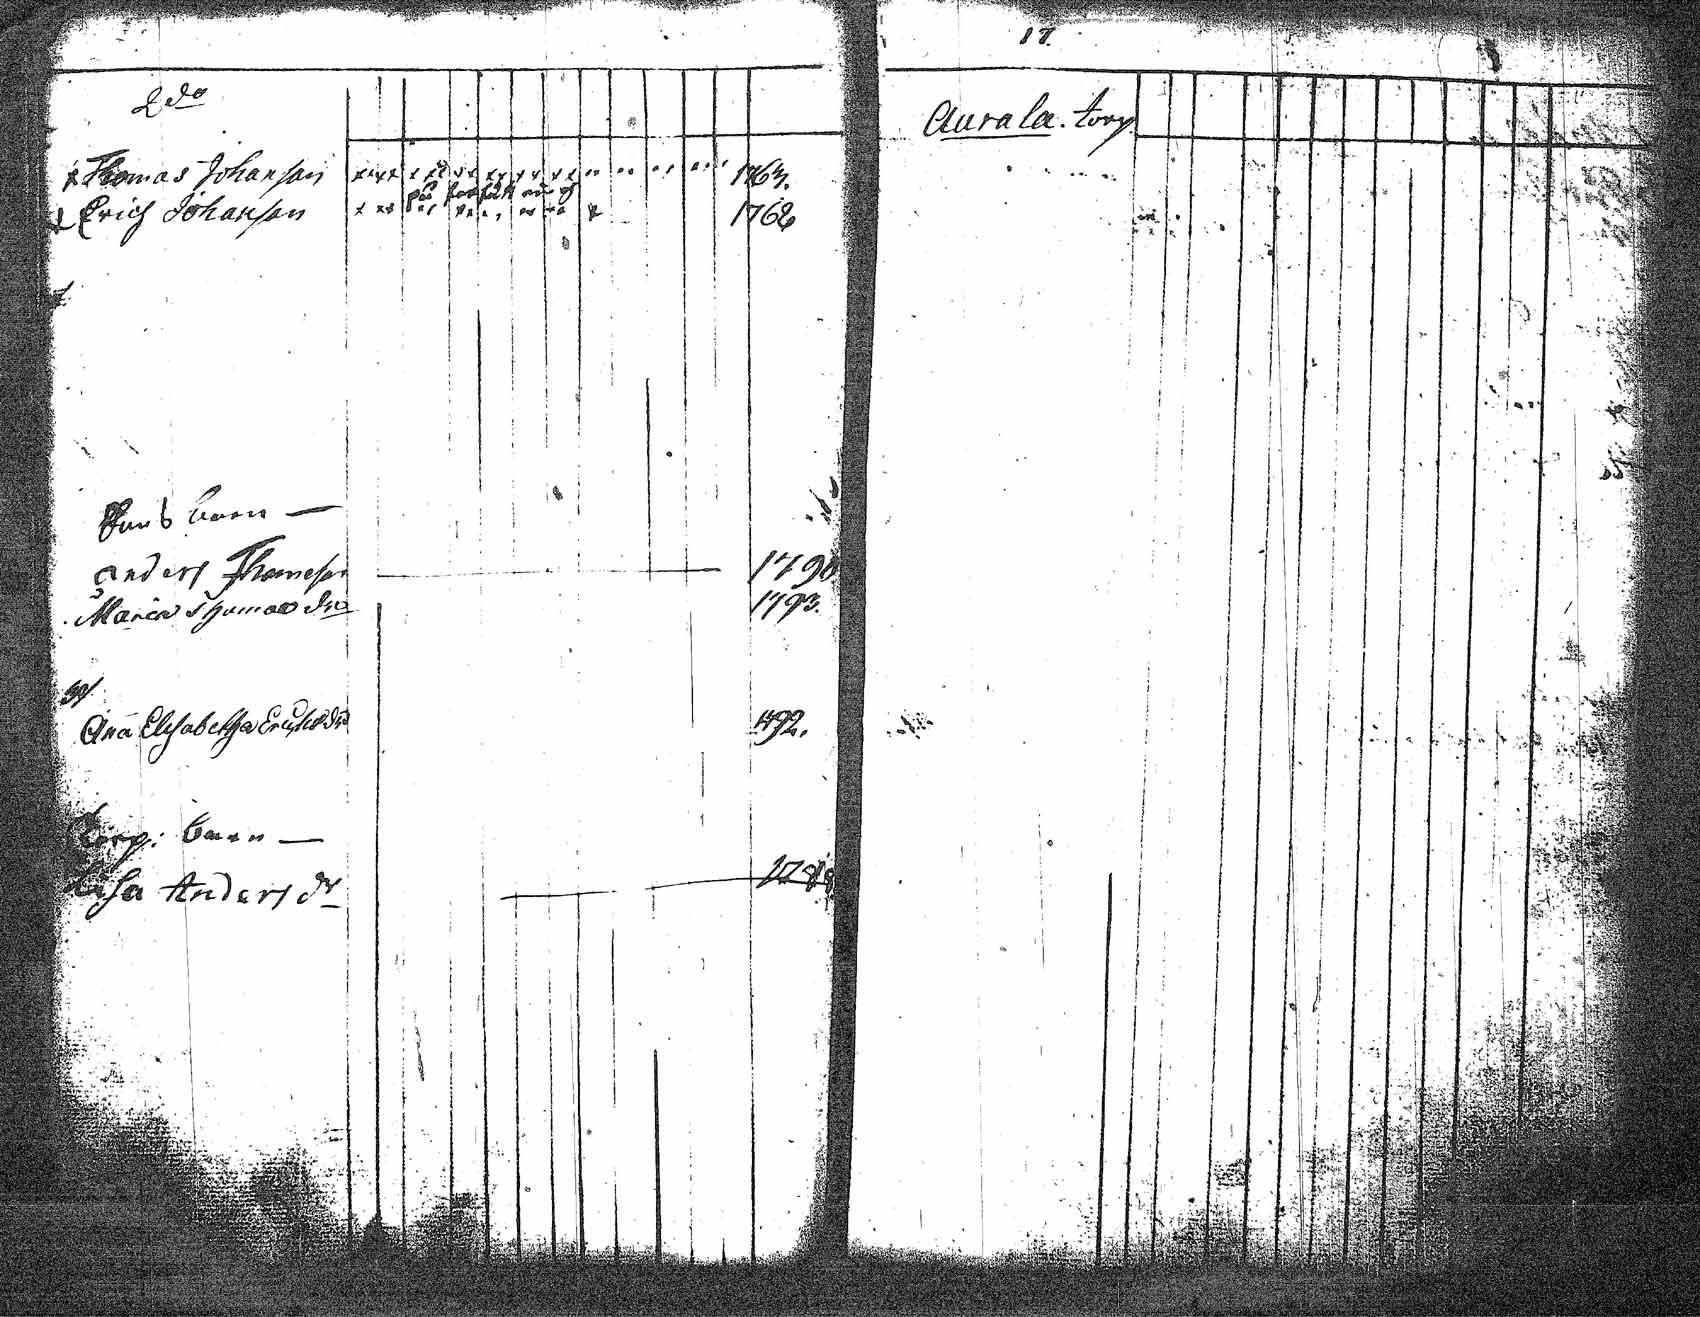 2 do
Thomas Johansson 1763.
Erich Johansson 1762
barn —
Anders Thomeson 1790
Maria Thomas dr 1793.
Ana Elisabetha Erichsdr 1792.
Torp: barn —
Lisa Anders dr 1788
17.
Aurala. torp